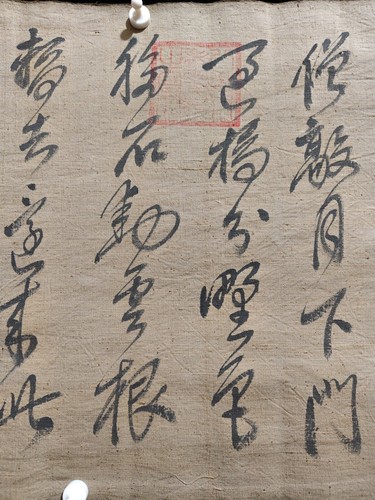 僧敲月下門
過橋分野色
移石動雲根
暫去還來此